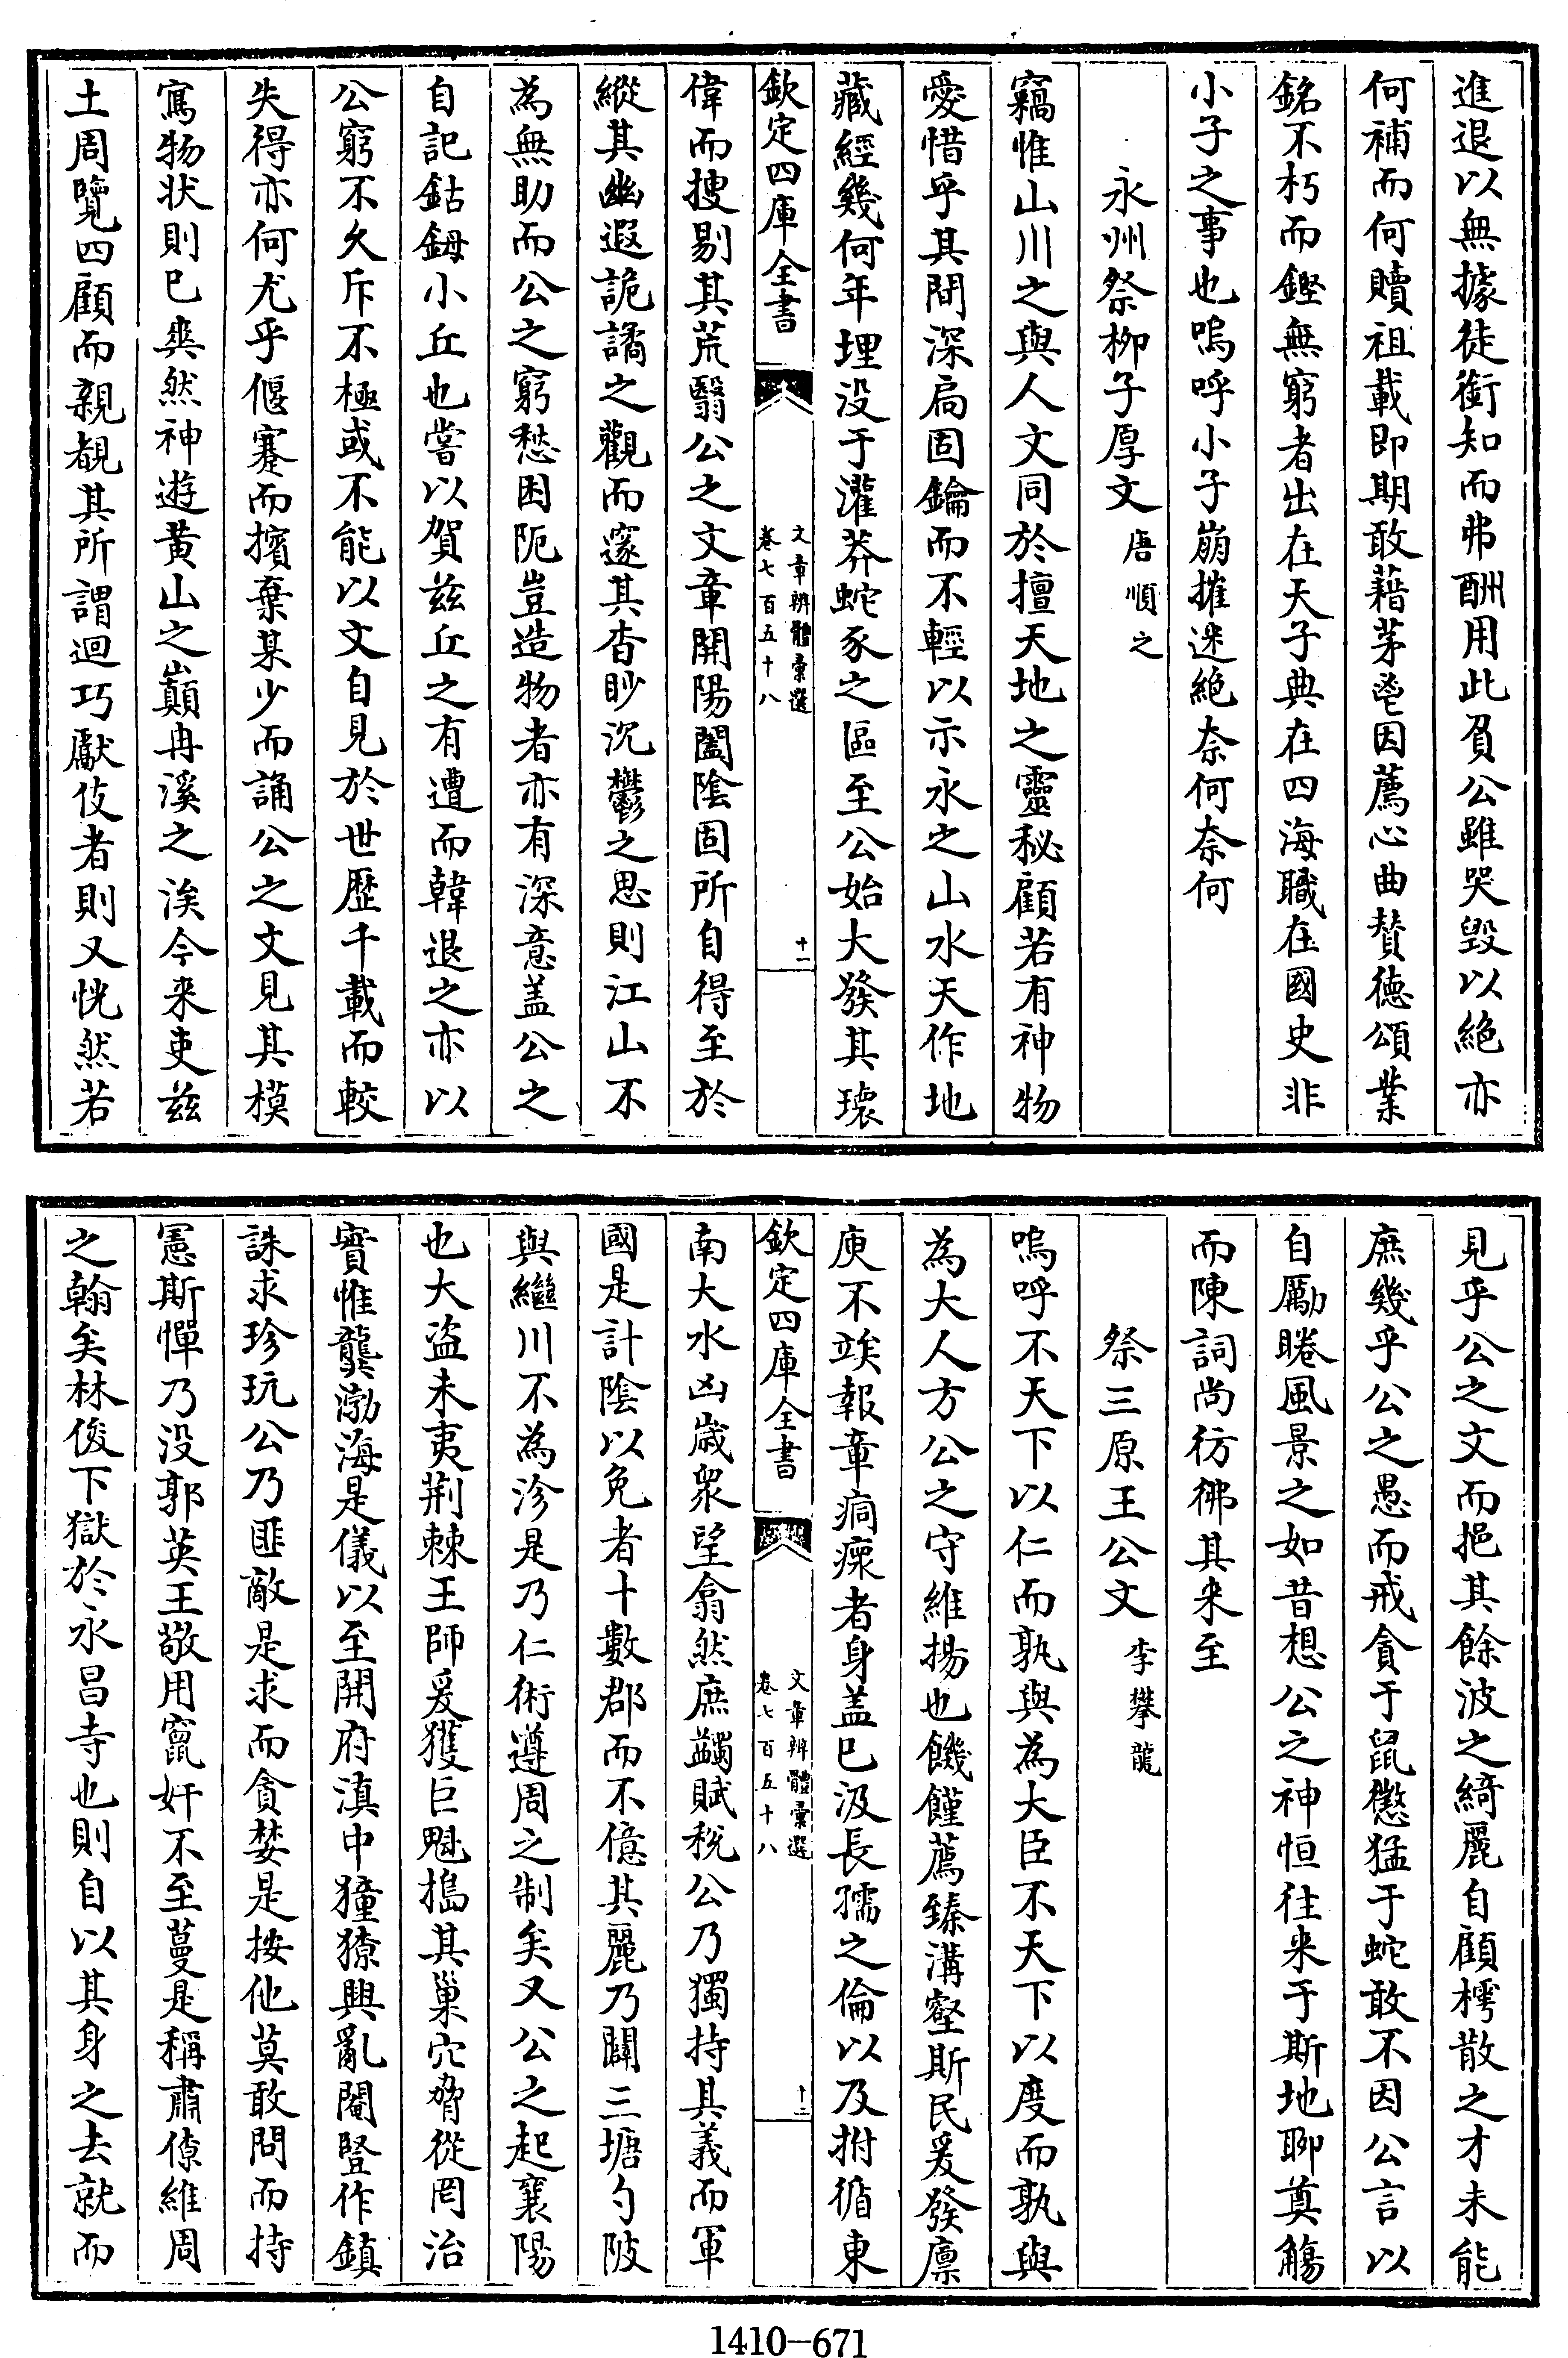 進退以無據徒銜知而弗酬用此負公雖哭毀以絶亦
何補而何贖祖載即期敢藉茅鬯因薦心曲賛徳頌業
銘不朽而鏗無窮者出在天子典在四海職在國史非
小子之事也嗚呼小子崩摧迷絶奈何奈何
永州祭栁子厚文 唐順之
竊惟山川之與人文同於擅天地之靈秘顧若有神物
愛惜乎其間深扃固鑰而不輕以示永之山水天作地
藏經幾何年埋没于灌莽蛇豕之區至公始大發其瓌
欽定四庫全書
文章辨體彚選
卷七百五十八
十一
偉而搜剔其荒翳公之文章開陽闔陰固所自得至於
縱其幽遐詭譎之觀而邃其杳眇沉鬱之思則江山不
為無助而公之窮愁困阨豈造物者亦有深意盖公之
自記鈷鉧小丘也嘗以賀兹丘之有遭而韓退之亦以
公窮不久斥不極或不能以文自見於世歴千載而較
失得亦何尤乎偃蹇而擯棄某少而誦公之文見其模
寫物狀則已爽然神遊黄山之巔冉溪之涘今來吏兹
土周覽四顧而親覩其所謂迴巧獻伎者則又恍然若
見乎公之文而挹其餘波之綺麗自顧樗散之才未能
庶幾乎公之愚而戒貪于鼠懲猛于蛇敢不因公言以
自勵睠風景之如昔想公之神恒往来于斯地聊奠觴
而陳詞尚彷彿其来至
祭三原王公文 李攀龍
嗚呼不天下以仁而孰與為大臣不天下以度而孰與
為大人方公之守維揚也饑饉薦臻溝壑斯民爰發廪
庾不竢報章痌瘝者身盖已汲長孺之倫以及拊循東
欽定四庫全書
文章辨體彚選
卷七百五十八
十二
南大水凶歳衆望翕然庶蠲賦税公乃獨持其義而軍
國是計陰以免者十數郡而不億其麗乃闢三塘勺陂
與繼川不為沴是乃仁術遵周之制矣又公之起襄陽
也大盗未夷荆棘王師爰獲巨魁搗其巢穴脅從罔治
實惟龔渤海是儀以至開府滇中獞獠興亂閹豎作鎮
誅求珍玩公乃匪敵是求而貪婪是按他莫敢問而持
憲斯憚乃没郭英王敬用竄奸不至蔓是稱肅僚維周
之翰矣林俊下獄於永昌寺也則自以其身之去就而
1410—671